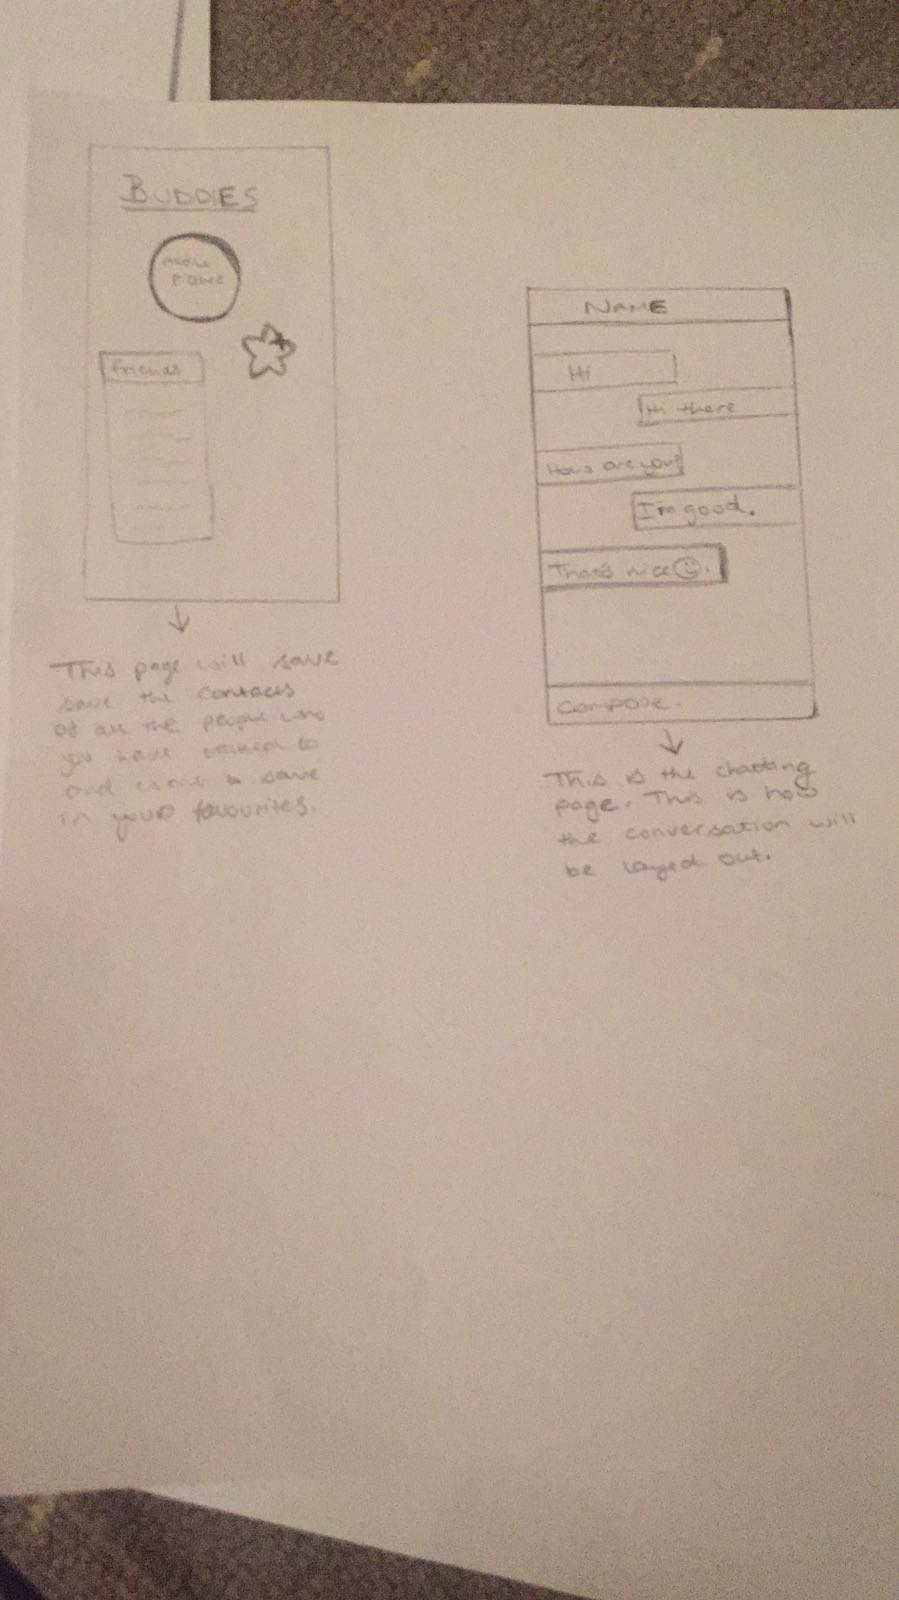 BUDDIES
picture
friends
This page will save
save the contacts
of all the people who
you have to
and want to save
in your favourites.
NAME
Hi
Hi there
How are you?
I'm good.
That's nice☺.
COMPOSE.
This is the chatting
page. This is how
the conversation will
be layed out.